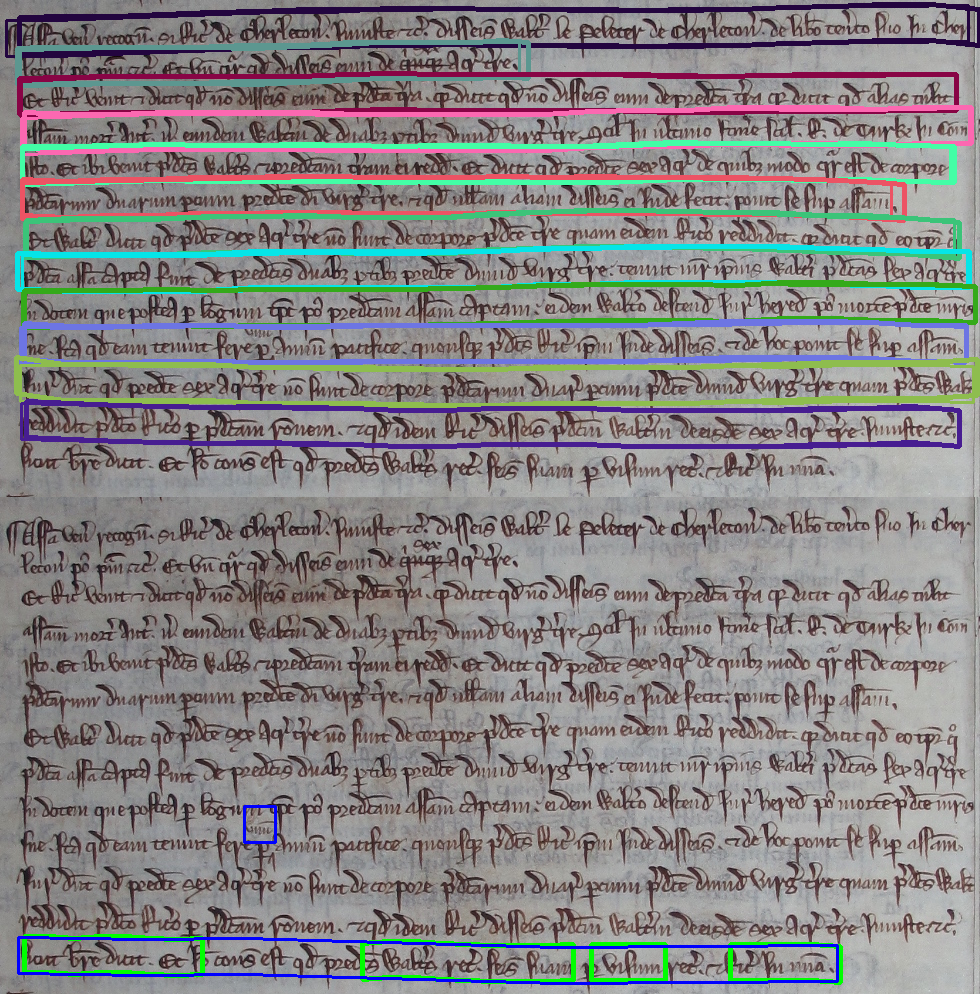 Assa ven recogn si Ric de Cherleton Iniuste &c disseis Walt le Peleter de Cherleton de libo tento suo in Cher
leton po pm &c Et vn qr qd disseis eum de sex acr tre
Et Ric venit & dicit qd no disseis eum de pdca tra qr dicit qd no disseis eum de predca tra qr dicit qd alias tulit
assam mort Ant vs eundem Waltm de duabz ptibz dimid virg tre
Et ibi venit pdcs Walts & predcam tram ei redd Et dicit qd predce sex acr de quibz modo qr est de corpore
pdcarum duarum pcium predce di virg tre & qd ullam aliam disseis ei inde fecit ponit se sup assam
Et Walt dicit qd pdce sex acr tre no sunt de corpore pdce tre quam eidem Rico reddidit qr dicit qd eo tpr q
pdca assa capta fuit de predcis duabz ptibz predce dimid virg tre tenuit mr ipius Walti pdcas sex acr tre
in dotem que postea p longum tps po predcam assam captam eidem Walto descend iur hered po morte pdce mris
sue Ita qd eam tenuit fere p Annu pacifice quousqz pdcs Ric ipm inde disseis & de hoc ponit se sup assam
Iur dicut qd predce sex acr tre no sunt de corpore pdcarum duar pcium pdce dimid virg tre quam pdcs Walt
reddidit pdco Rico p pdcam & qd idem Ric disseis pdcm Waltm de eisdem sex acr tre Iniuste &c
sicut bre dicit Et Io cons est qd predcs Walts rec seis suam p visum rec & Ric in mia
Assa ven recogn si Ric de Cherleton Iniuste &c disseis Walt le Peleter de Cherleton de libo tento suo in Cher
leton po pm &c Et vn qr qd disseis eum de sex acr tre
Et Ric venit & dicit qd no disseis eum de pdca tra qr dicit qd no disseis eum de predca tra qr dicit qd alias tulit
assam mort Ant vs eundem Waltm de duabz ptibz dimid virg tre
Et ibi venit pdcs Walts & predcam tram ei redd Et dicit qd predce sex acr de quibz modo qr est de corpore
pdcarum duarum pcium predce di virg tre & qd ullam aliam disseis ei inde fecit ponit se sup assam
Et Walt dicit qd pdce sex acr tre no sunt de corpore pdce tre quam eidem Rico reddidit qr dicit qd eo tpr q
pdca assa capta fuit de predcis duabz ptibz predce dimid virg tre tenuit mr ipius Walti pdcas sex acr tre
in dotem que postea p longum tps po predcam assam captam eidem Walto descend iur hered po morte pdce mris
sue Ita qd eam tenuit fere p Annu pacifice quousqz pdcs Ric ipm inde disseis & de hoc ponit se sup assam
Iur dicut qd predce sex acr tre no sunt de corpore pdcarum duar pcium pdce dimid virg tre quam pdcs Walt
reddidit pdco Rico p pdcam & qd idem Ric disseis pdcm Waltm de eisdem sex acr tre Iniuste &c
sicut bre dicit Et Io cons est qd predcs Walts rec seis suam p visum rec & Ric in mia